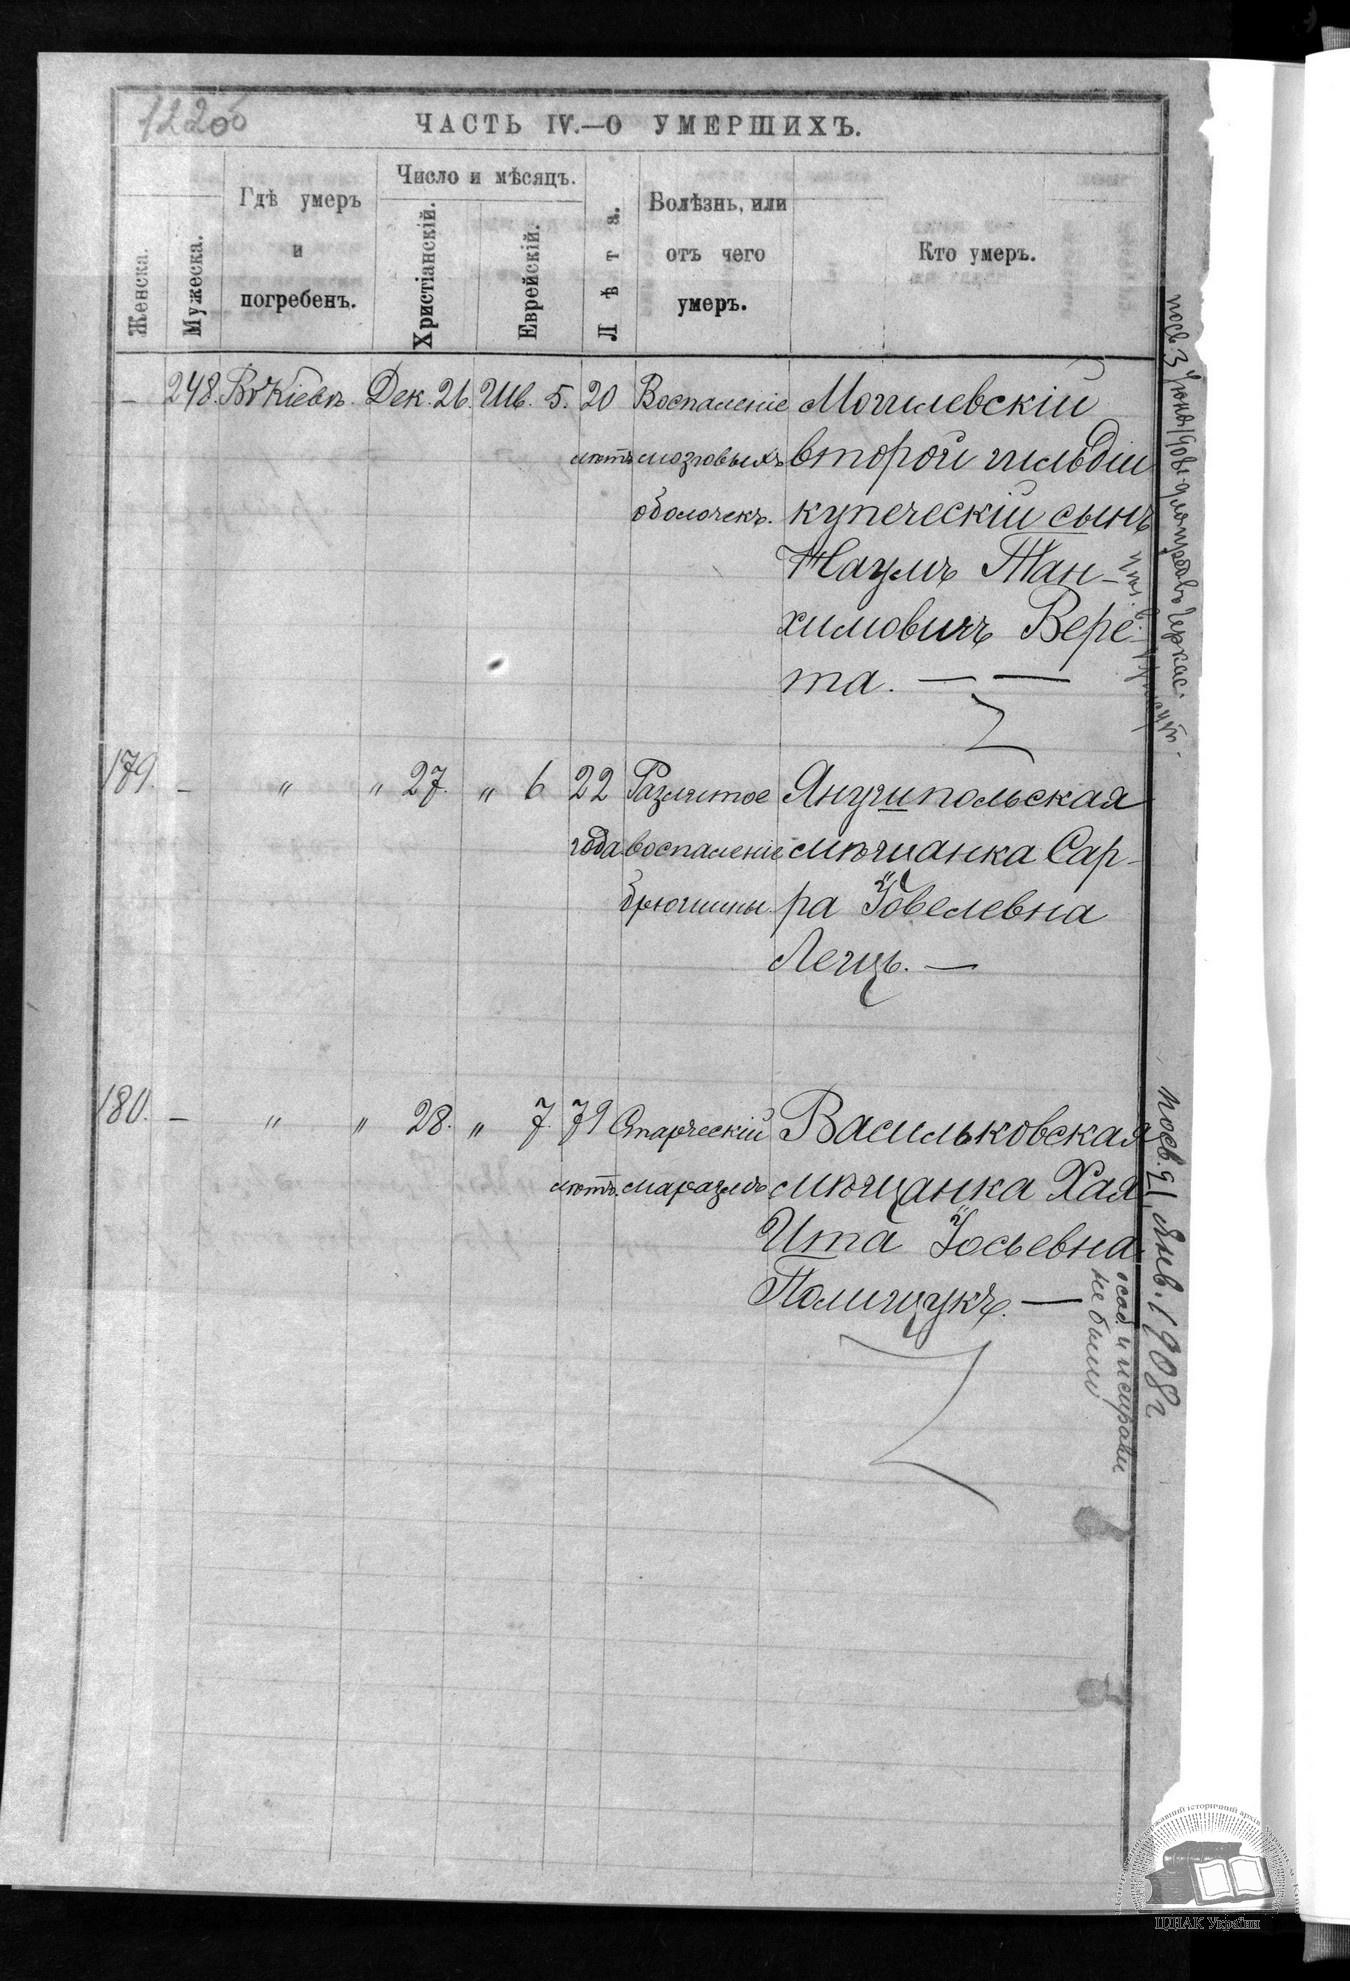 122об
ЧАСТЬ IV.—О УМЕРШИХЪ.
Женска.
Мужеска.
Гдѣ умеръ
и
погребенъ.
Число и мѣсяцъ.
Христіанскій.
Еврейскій.
Лѣта.
Болѣзнь, или
отъ чего
умеръ.
Кто умеръ.
— 248. Въ Кіевѣ. Дек. 26. Шв. 5. 20 Воспаленіе Могилевскій
лѣтъ мозговыхъ второй гильдіи
оболочекъ. купеческій сынъ
Наумъ Тан-
химовичъ Вере-
та. — —
179. — „ „ 27. „ 6 22 Разлитое Янушпольская
года воспаленіе мѣщанка Сар-
брюшины. ра Іовелевна
Легцъ. —
180. — „ „ 28. „ 7. 79 Старческій Васильковская
лѣтъ. маразмъ мѣщанка Хая
Ита Іосьевна
Полищукъ. —
посв. 3 Іюня
Черкас.
посв. 21 Янв. 1908 г
не было
ЦДІАК України